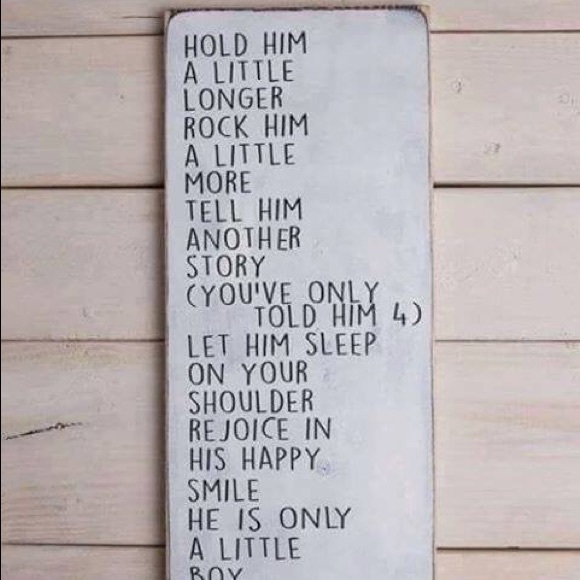 HOLD HIM
A LITTLE
LONGER
ROCK HIM
A LITTLE
MORE
TELL HIM
ANOTHER
STORY
(YOU'VE ONLY
TOLD HIM 4)
LET HIM SLEEP
ON YOUR
SHOULDER
REJOICE IN
HIS HAPPY
SMILE
HE IS ONLY
A LITTLE
BOY